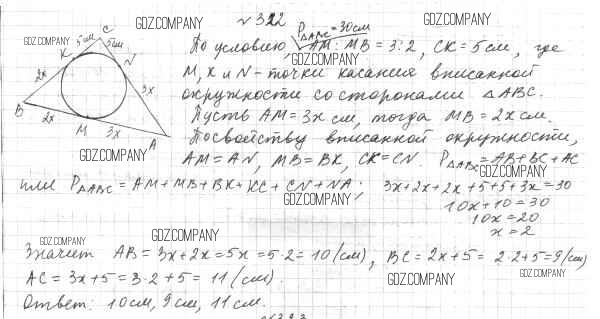 №322
По условию, P△ABC = 30 см AM : MB = 3 : 2, CK = 5 см, где
M, K и N - точки касания вписанной
окружности со сторонами △ABC.
Пусть AM = 3x см, тогда MB = 2x см.
По свойству вписанной окружности,
AM = AN, MB = BK, CK = CN. P△ABC = AB + BC + AC
или P△ABC = AM + MB + BK + KC + CN + NA; 3x + 2x + 2x + 5 + 5 + 3x = 30
10x + 10 = 30
10x = 20
x = 2
Значит AB = 3x + 2x = 5x = 5·2 = 10 (см), BC = 2x + 5 = 2·2 + 5 = 9 (см)
AC = 3x + 5 = 3·2 + 5 = 11 (см).
Ответ: 10 см, 9 см, 11 см.
№323
C
5см 5см
K N
2x 3x
B
2x M 3x
A
GDZ.COMPANY
GDZ.COMPANY
GDZ.COMPANY
GDZ.COMPANY
GDZ.COMPANY
GDZ.COMPANY
GDZ.COMPANY
GDZ.COMPANY
GDZ.COMPANY
GDZ.COMPANY
GDZ.COMPANY